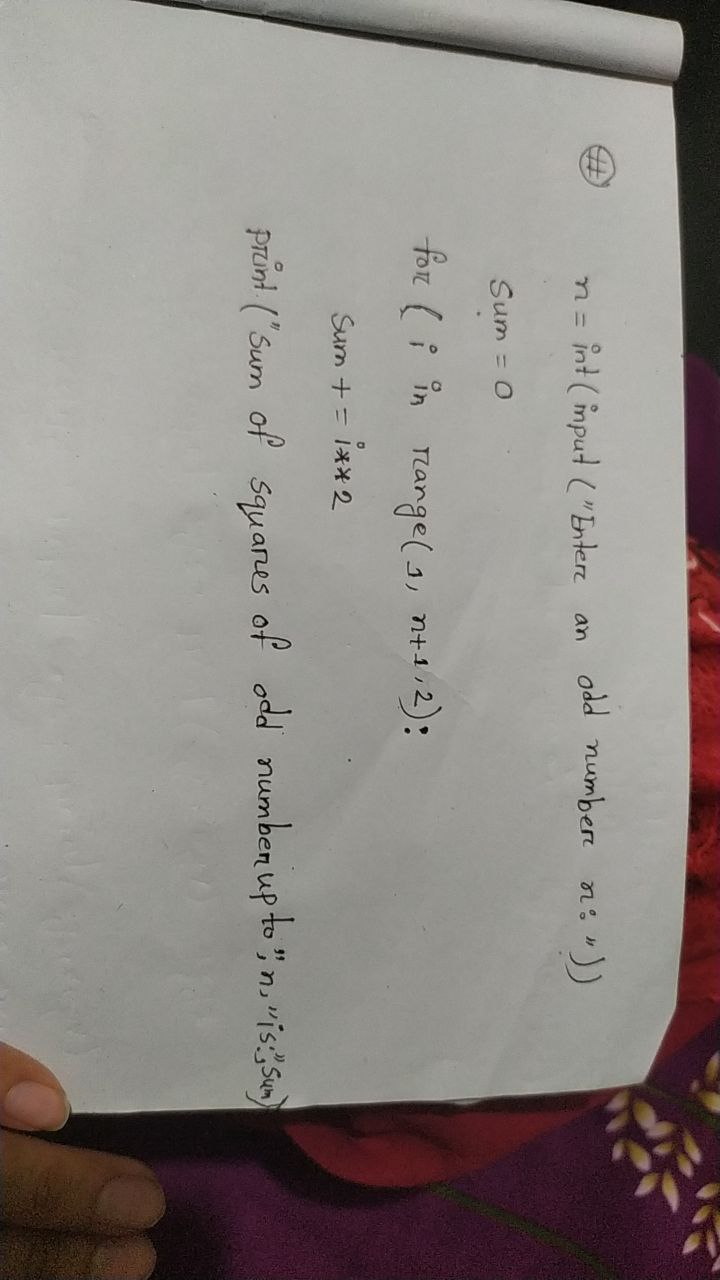 #
n = int(input("Enter an odd number n: "))
Sum = 0
for ( i in range(1, n+1, 2):
Sum += i**2
print ("Sum of squares of odd number up to", n, "is:", Sum)